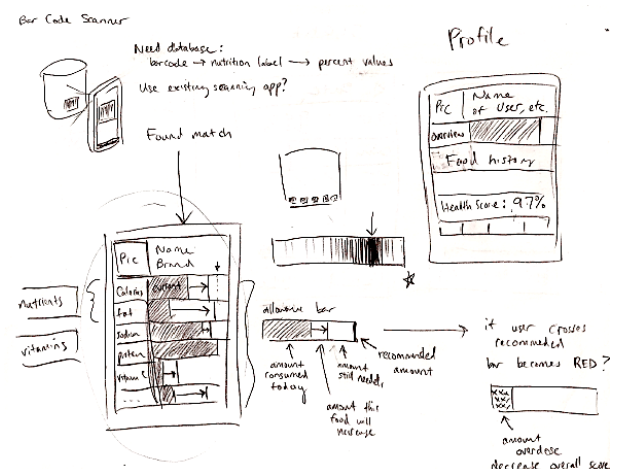 Bar Code Scanner
Need database:
barcode → nutrition label → percent values
Use existing scanning app?
Found match
Profile
Pic
Name
of User, etc.
overview
Food history
Health Score: 97%
Pic
Name
Brand
Calories
current
fat
sodium
protein
vitamin C
...
nutrients
vitamins
allowance bar
amount
consumed
today
amount this
food will
increase
amount
still needed
recommended
amount
if user crosses
recommended
bar becomes RED?
amount
overdose
decrease overall score